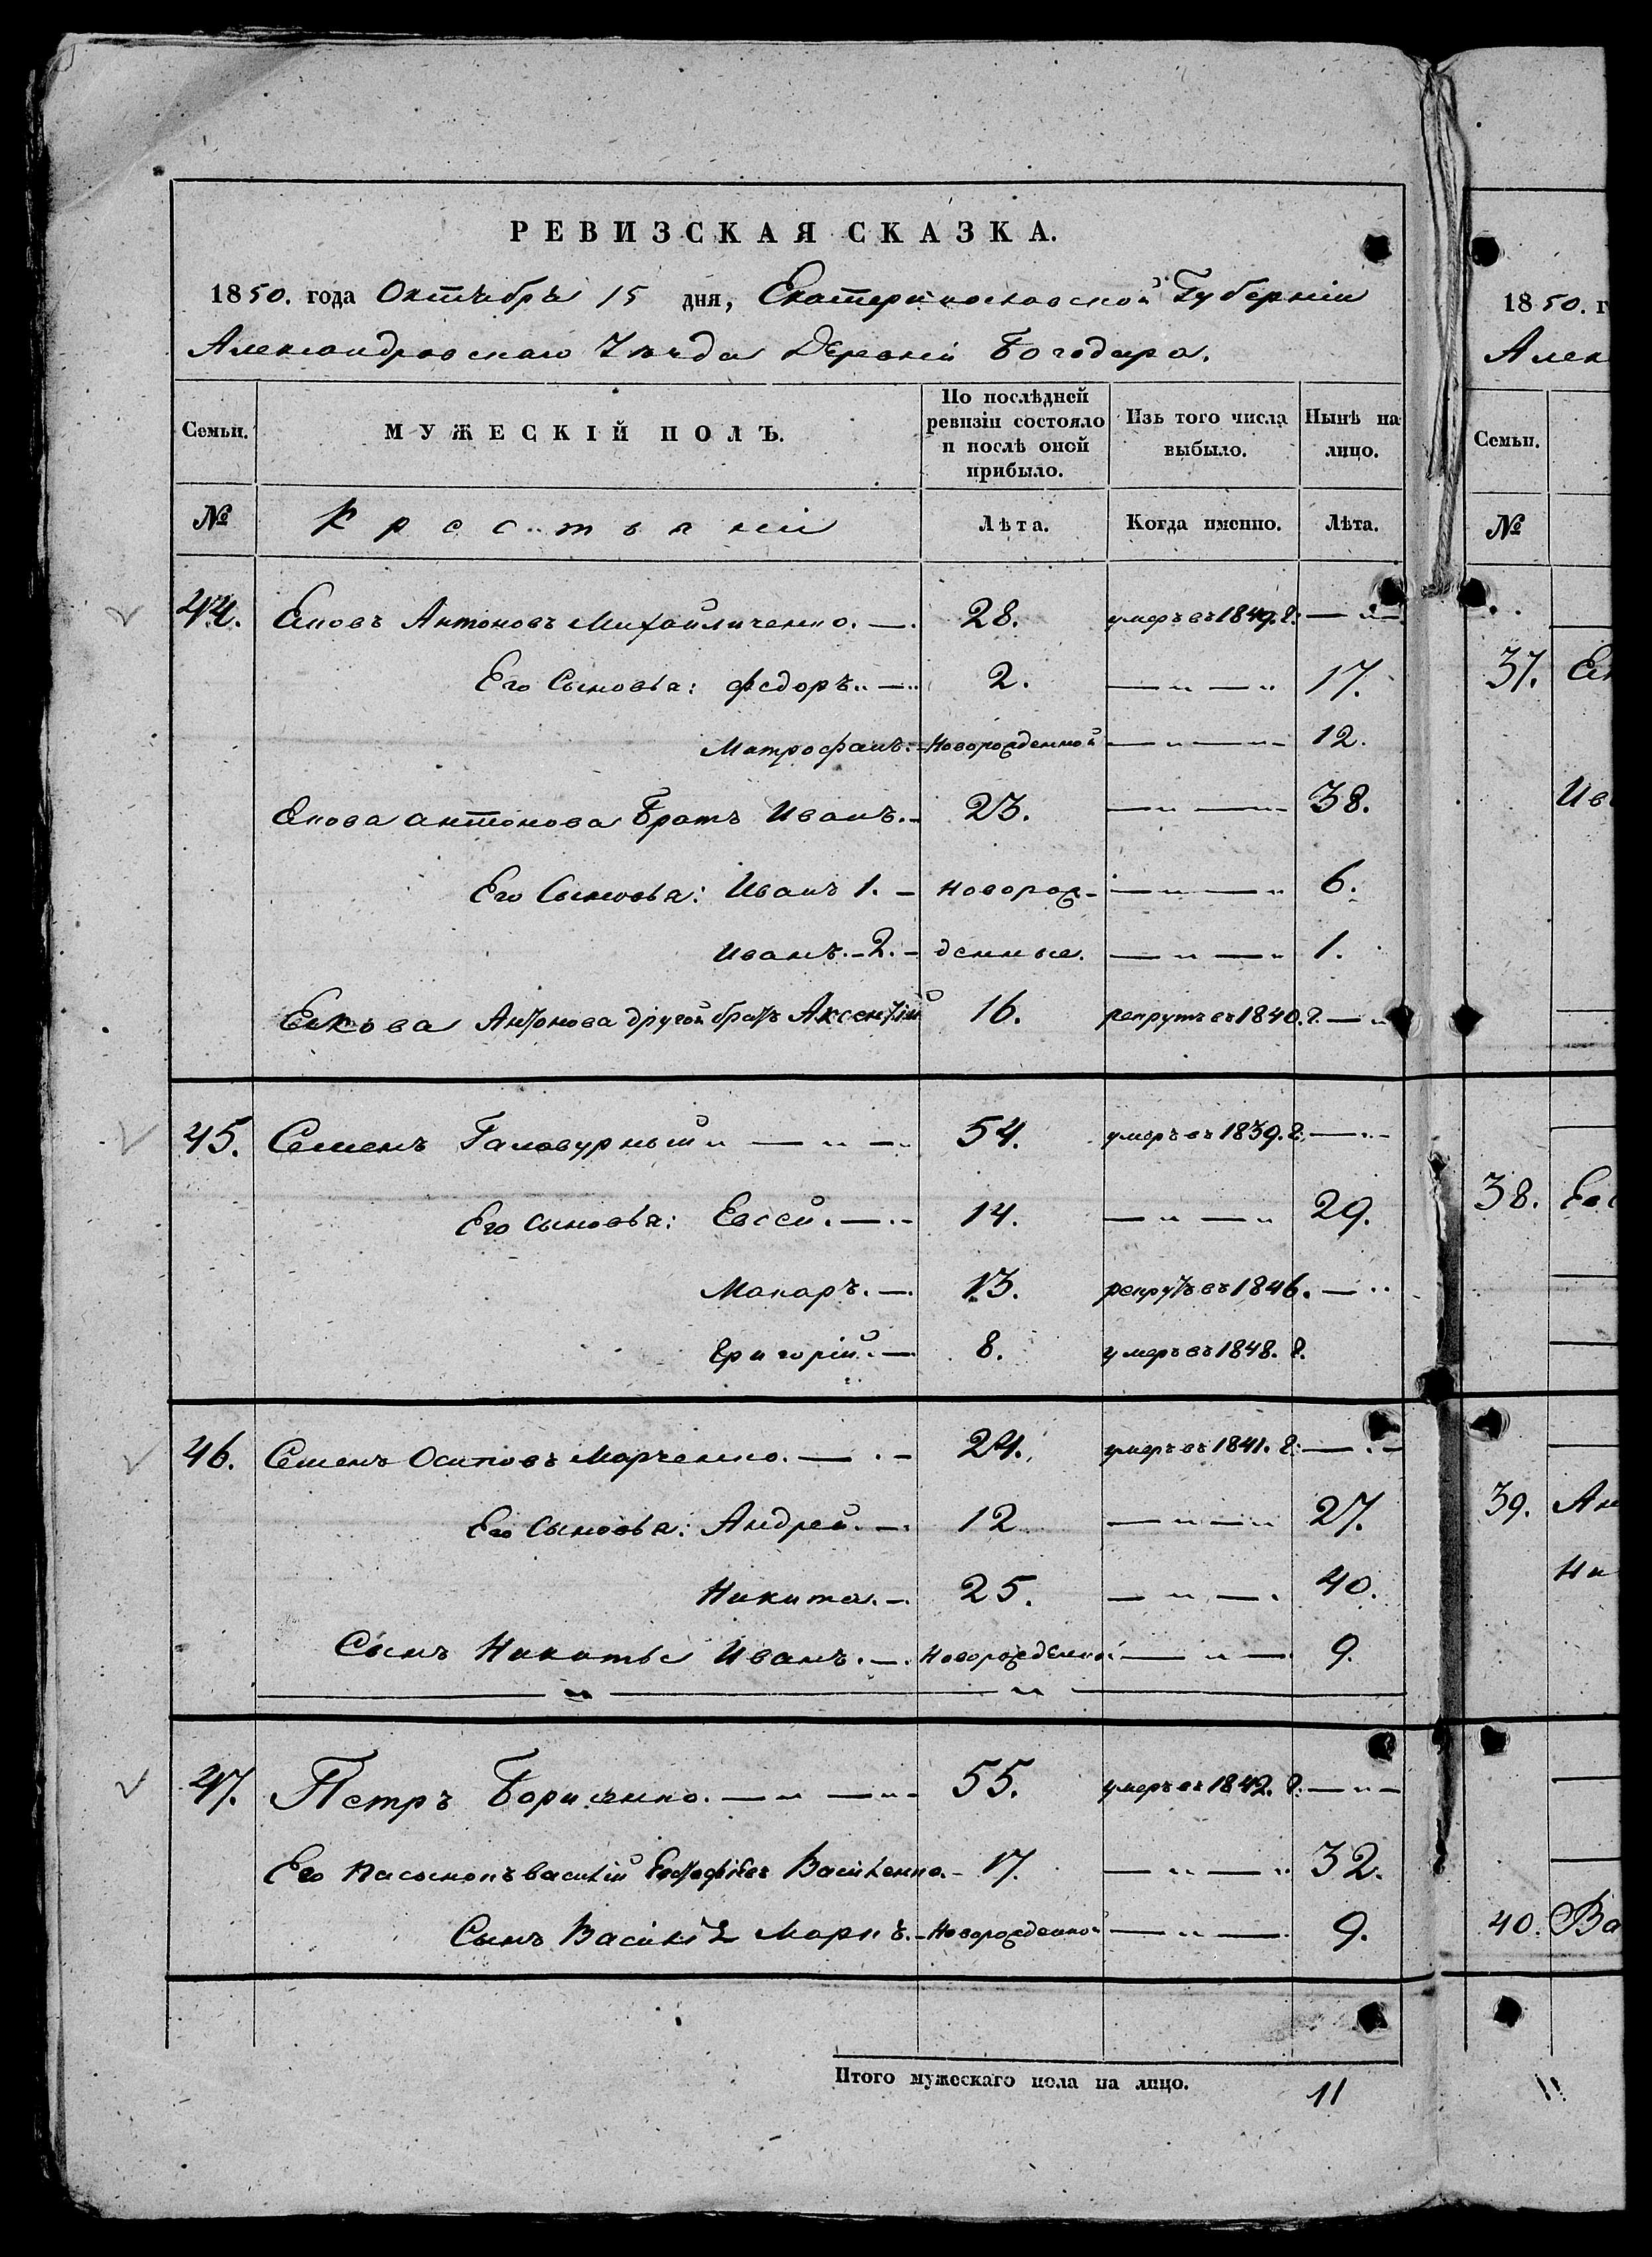 РЕВИЗСКАЯ СКАЗКА.
1850. года Октября 15 дня, Екатеринославской Губерніи
Александровскаго Уѣзда Деревни Богодара.
Семьи.
МУЖЕСКІЙ ПОЛЪ.
По послѣдней ревизіи состояло и послѣ оной прибыло.
Изъ того числа выбыло.
Нынѣ на лицо.
№ Крестьяніи Лѣта. Когда именно. Лѣта.
44. Яковъ Антоновъ Михайличенко. 28. умеръ въ 1849. г. —„—
Его Сыновья: Федоръ. 2. —„—„ 17.
Митрофанъ. Новорожденной —„—„ 12.
Якова Антонова Братъ Иванъ. 23. —„—„ 38.
Его Сыновья: Иванъ 1. новорож- —„—„ 6.
Иванъ. 2. денные. —„—„ 1.
Якова Антонова другой братъ Аксентій 16. рекрутъ въ 1840. г. —„
45. Семенъ 54. умеръ въ 1839. г. —„—
Его сыновья: Евсей. 14. —„—„ 29.
Макаръ. 13. рекрутъ въ 1846. —„
Григорій. 8. умеръ въ 1848. г.
46. Семенъ Осиповъ Марченко. 24. умеръ въ 1841. г. —„—
Его Сыновья: Андрей. 12 —„—„ 27.
Никита. 25. —„—. 40.
Сынъ Никиты Иванъ. Новорожденной —„— 9.
47. Петръ Борисенко. 55. умеръ въ 1842. г. —„—
Его пасынокъ Василій Василенко. 17. —„—„ 32.
Сынъ Василія Маркъ. Новорожденной —„— 9.
Итого мужескаго пола на лицо. 11
1850. г
Алек
Семьи.
№
37.
Ив
38. Евс
39. Ан
Ни
40. Ва
11